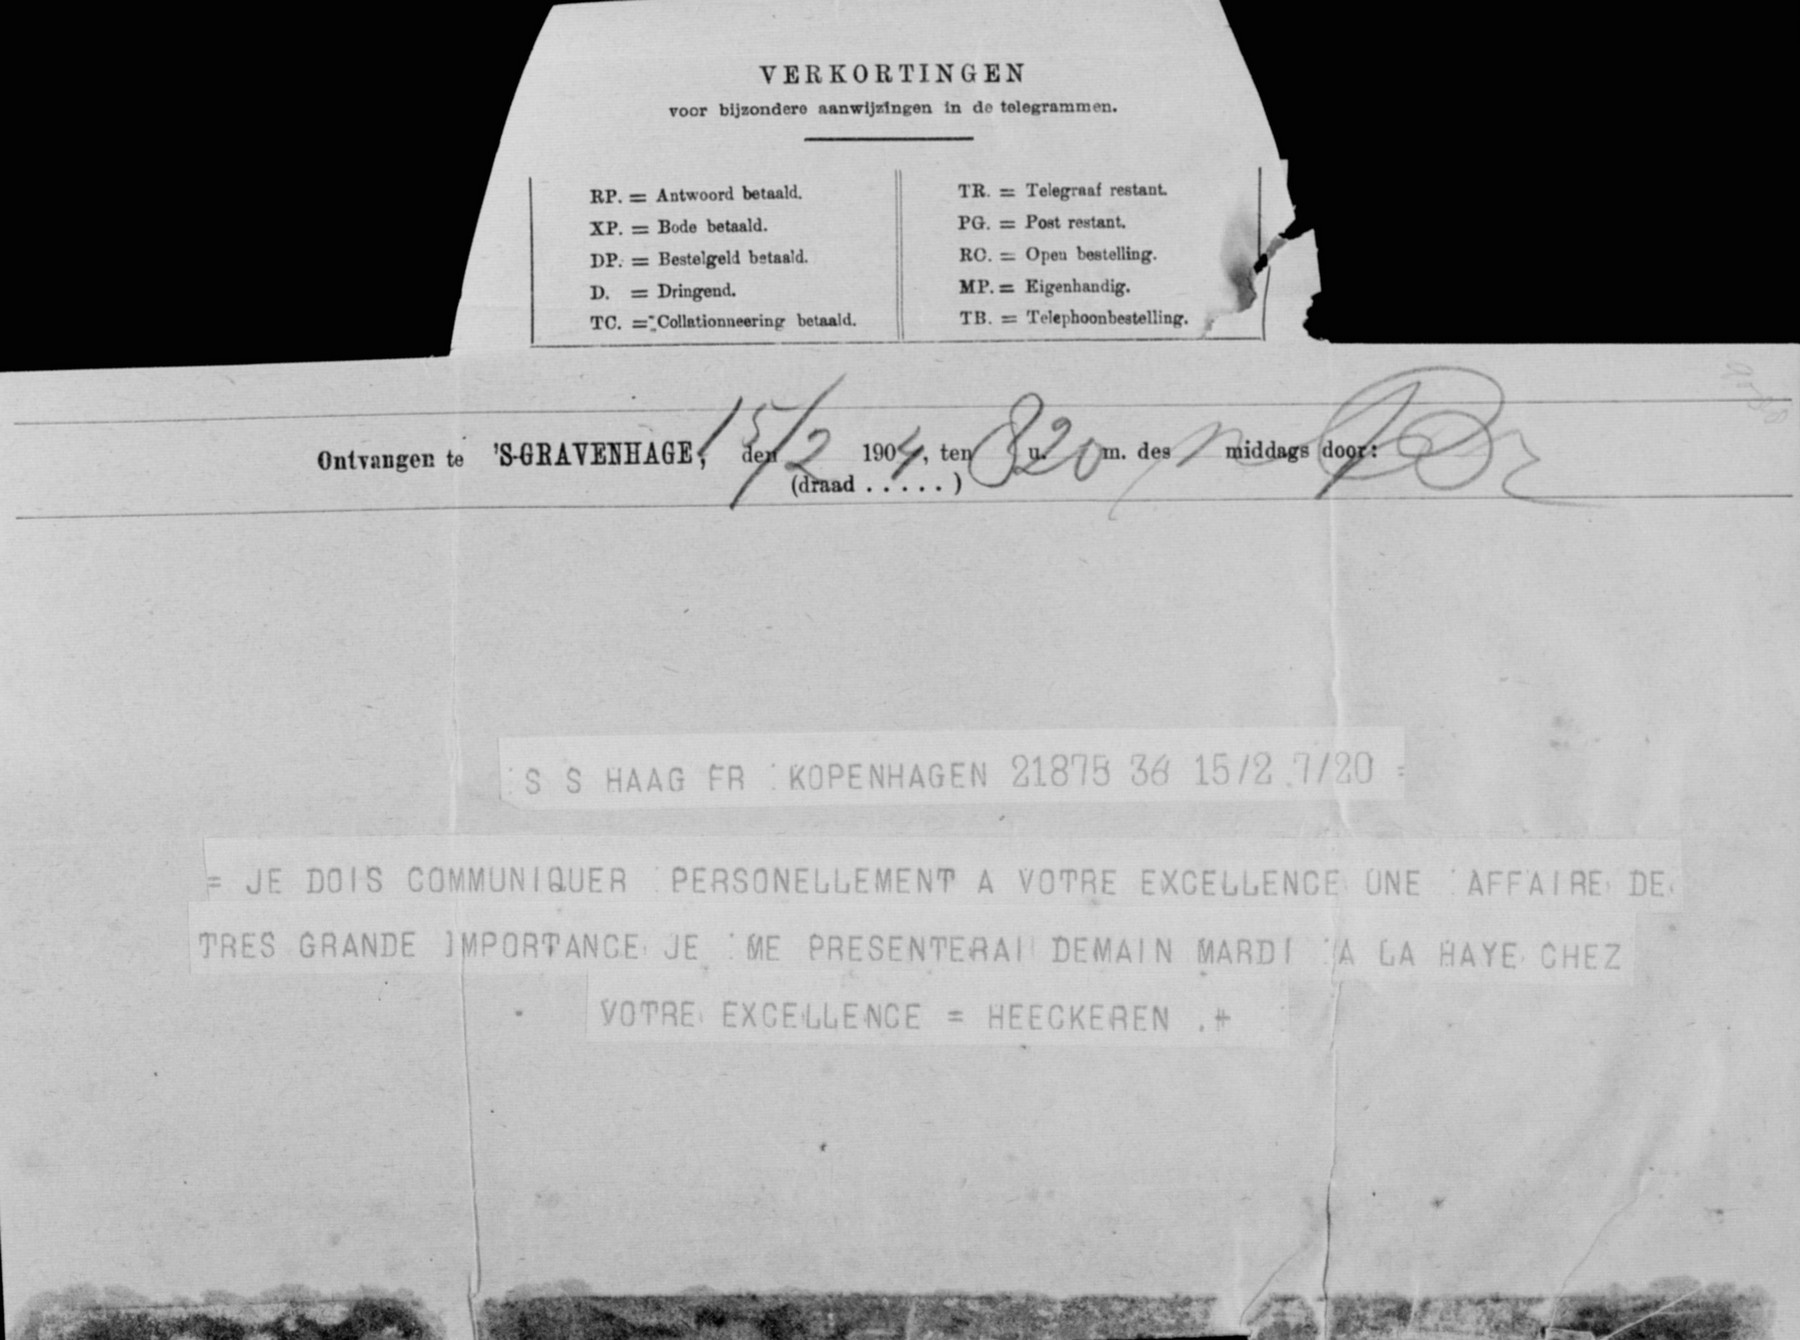 VERKORTINGEN
voor bijzondere aanwijzingen in de telegrammen.
RP. = Antwoord betaald.
XP. = Bode betaald.
DP. = Bestelgeld betaald.
D. = Dringend.
TC. = Collationneering betaald.
TR. = Telegraaf restant.
PG. = Post restant.
RO. = Open bestelling.
MP. = Eigenhandig.
TB. = Telephoonbestelling.
Ontvangen te 'S-GRAVENHAGE, den 15/2 1904, ten 8 u. 20 m. des n middags door:
(draad . . . . . )
S S HAAG FR KOPENHAGEN 21875 36 15/2 7/20 =
= JE DOIS COMMUNIQUER PERSONELLEMENT A VOTRE EXCELLENCE UNE AFFAIRE DE
TRES GRANDE IMPORTANCE JE ME PRESENTERAI DEMAIN MARDI A LA HAYE CHEZ
VOTRE EXCELLENCE = HEECKEREN .+